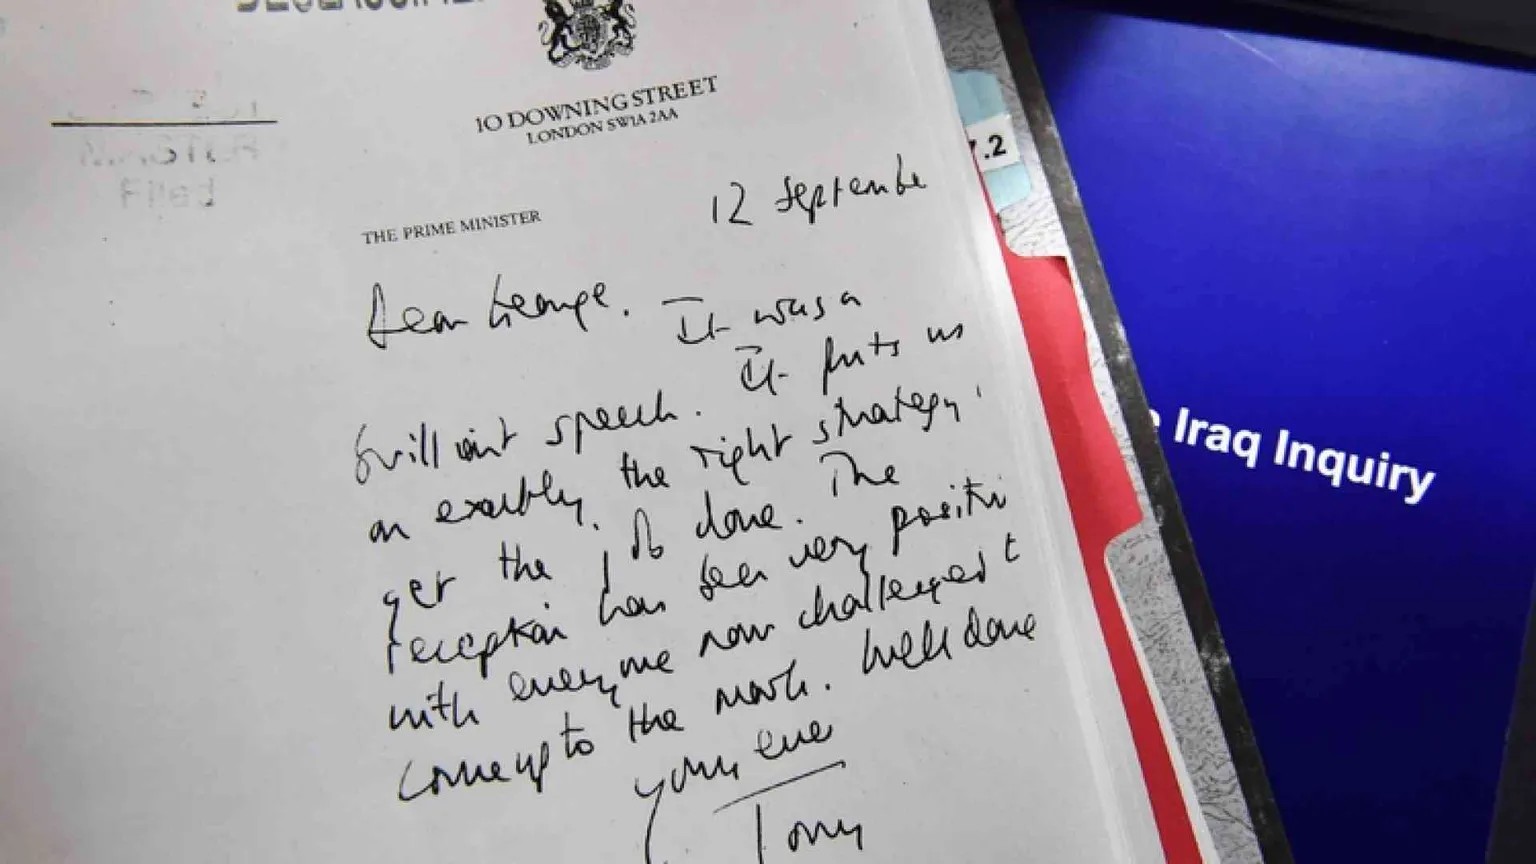 10 DOWNING STREET
LONDON SW1A 2AA
THE PRIME MINISTER
12 September
7.2
Filed
Dear George. It was a
brilliant speech. It puts us
on exactly the right strategy
get the job done. The
reception has been very positive
with everyone now challenged to
come up to the mark. Well done
Yours ever
Tony
Iraq Inquiry